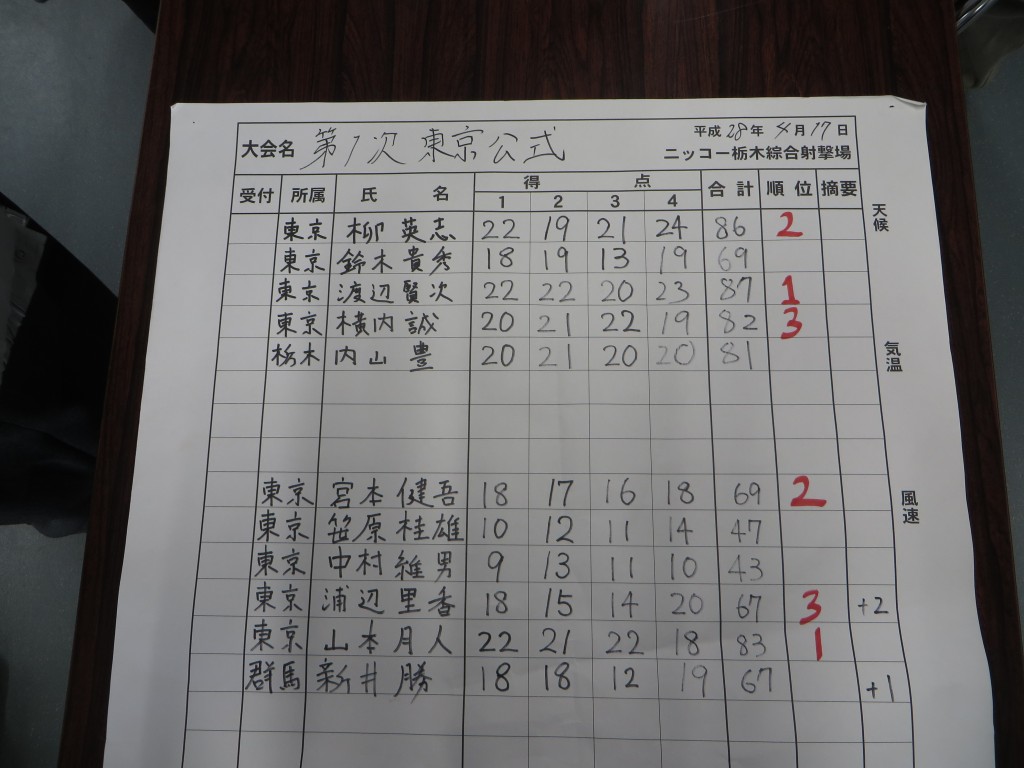 大会名 第1次 東京公式 平成28年4月17日
ニッコー栃木綜合射撃場
受付 所属 氏名 得点 合計 順位 摘要
1 2 3 4
東京 柳 英志 22 19 21 24 86 2
東京 鈴木貴秀 18 19 13 19 69
東京 渡辺賢次 22 22 20 23 87 1
東京 横内 誠 20 21 22 19 82 3
栃木 内山 豊 20 21 20 20 81
東京 宮本健吾 18 17 16 18 69 2
東京 笹原桂雄 10 12 11 14 47
東京 中村維男 9 13 11 10 43
東京 浦辺里香 18 15 14 20 67 3 +2
東京 山本月人 22 21 22 18 83 1
群馬 新井 勝 18 18 12 19 67 +1
天候
気温
風速